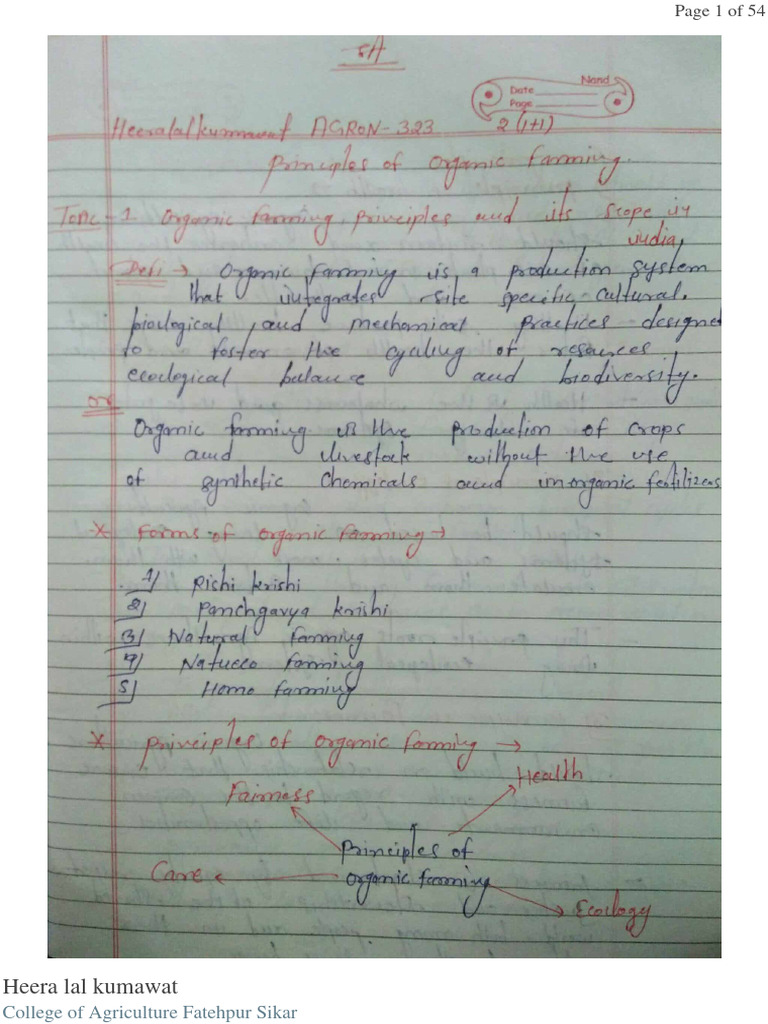 Page 1 of 54
5A
Nand
Date
Page
Heeralal kumawat AGRON-323 2(1+1)
Principles of organic farming.
Topic-1. Organic farming, principles and its scope in
india,
Defi → Organic farming is a production system
that integrates site specific cultural,
biological, and mechanical practices designed
to foster the cycling of resources
ecological balance and biodiversity.
or
Organic farming is the production of crops
and livestock without the use
of synthetic chemicals and inorganic fertilizers
* forms of organic farming →
1) Rishi krishi
2) Panchgavya krishi
3) Natural farming
4) Natueco farming
5) Homo farming
* Principles of organic farming →
Health
Fairness
Principles of
Care organic farming
Ecology
Heera lal kumawat
College of Agriculture Fatehpur Sikar